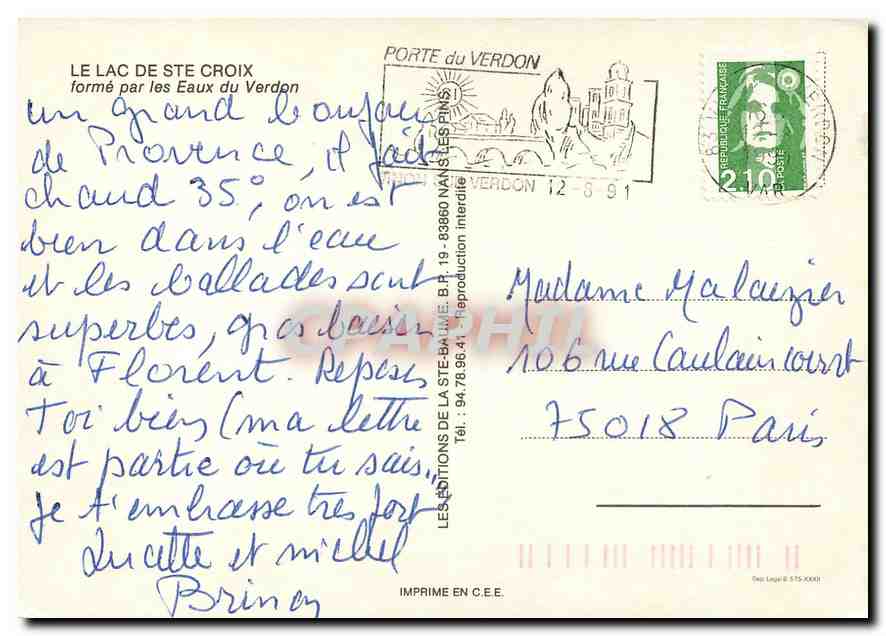 LE LAC DE STE CROIX
formé par les Eaux du Verdon
un grand bonjour
de Provence, il fait
chaud 35°, on est
bien dans l'eau
et les ballades sont
superbes, gros baisers
à Florent. Reposes
Toi bien (ma lettre
est partie où tu sais,
je t'embrasse très fort
Lucette et michel
PORTE du VERDON
VINON SUR VERDON 12-8-91
REPUBLIQUE FRANÇAISE
2,10
POSTE
VAR
LES EDITIONS DE LA STE-BAUME. B.P. 19 - 83860 NANS LES PINS
Tél. : 94.78.96.41 Reproduction interdite
Madame Malaezier
106 rue Caulaincourt
75018 Paris
CPAPHIL
IMPRIME EN C.E.E.